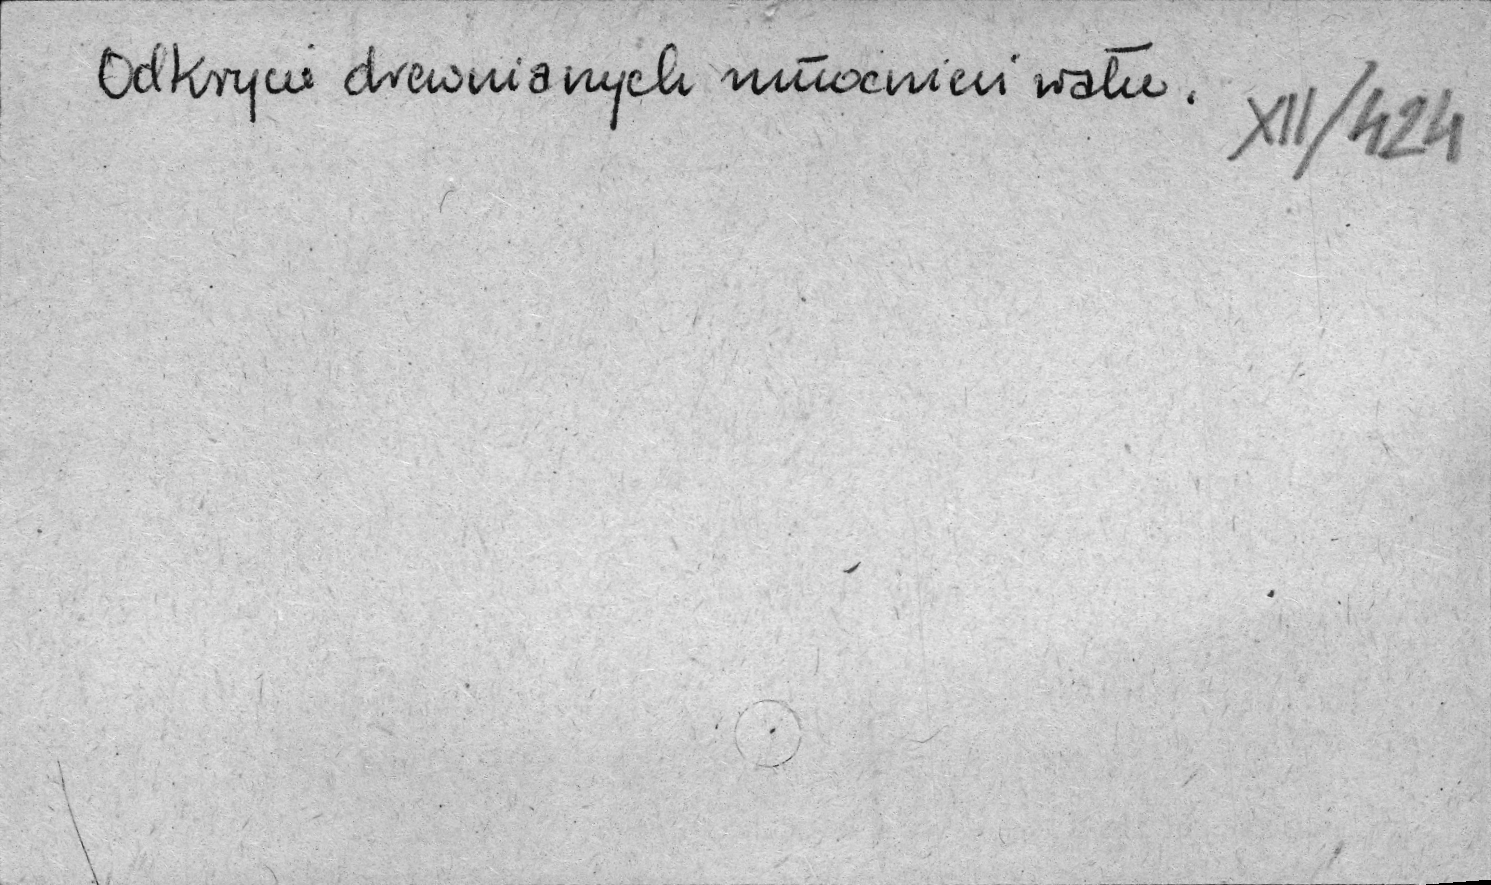 Odkrycie drewnianych umocnień wału.
XII/424